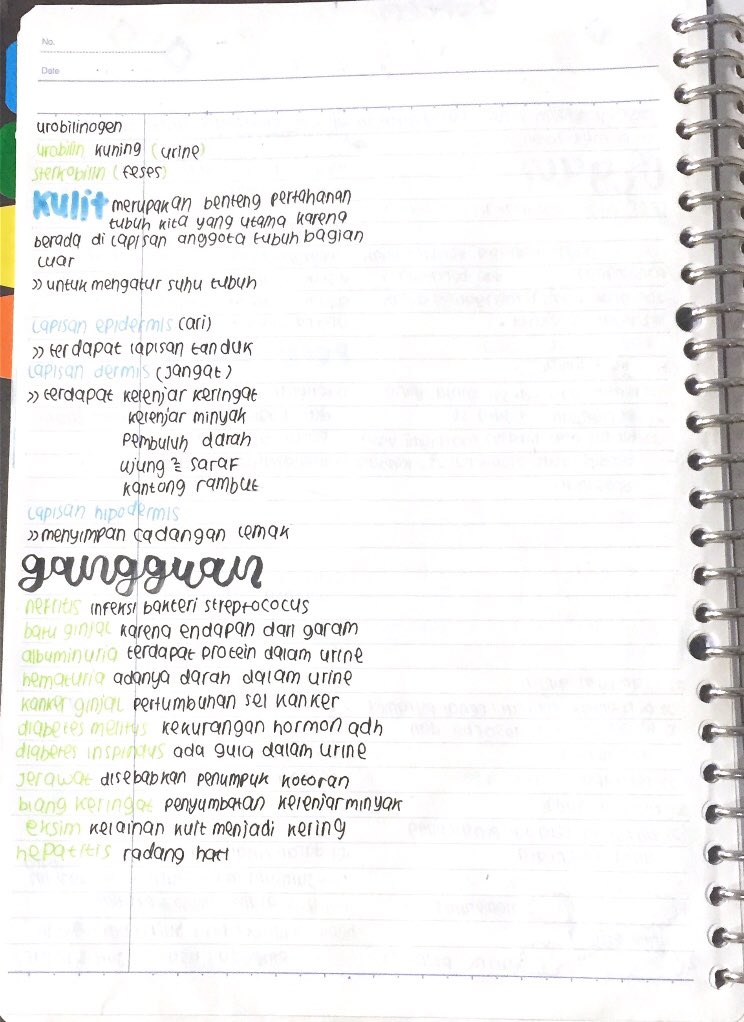 No.
Date
urobilinogen
urobilin kuning (urine)
sterkobilin (feses)
kulit merupakan benteng pertahanan
tubuh kita yang utama karena
berada di lapisan anggota tubuh bagian
luar
>> untuk mengatur suhu tubuh
lapisan epidermis (ari)
>> terdapat lapisan tanduk
lapisan dermis (jangat)
>> terdapat kelenjar keringat
kelenjar minyak
pembuluh darah
ujung ² saraf
kantong rambut
lapisan hipodermis
>> menyimpan cadangan lemak
gangguan
nefritis infeksi bakteri streptococus
batu ginjal karena endapan dari garam
albuminuria terdapat protein dalam urine
hematuria adanya darah dalam urine
kanker ginjal pertumbuhan sel kanker
diabetes melitus kekurangan hormon adh
diabetes inspindus ada gula dalam urine
jerawat disebabkan penumpuk kotoran
biang keringat penyumbatan kelenjar minyak
eksim kelainan kulit menjadi kering
hepatitis radang hati